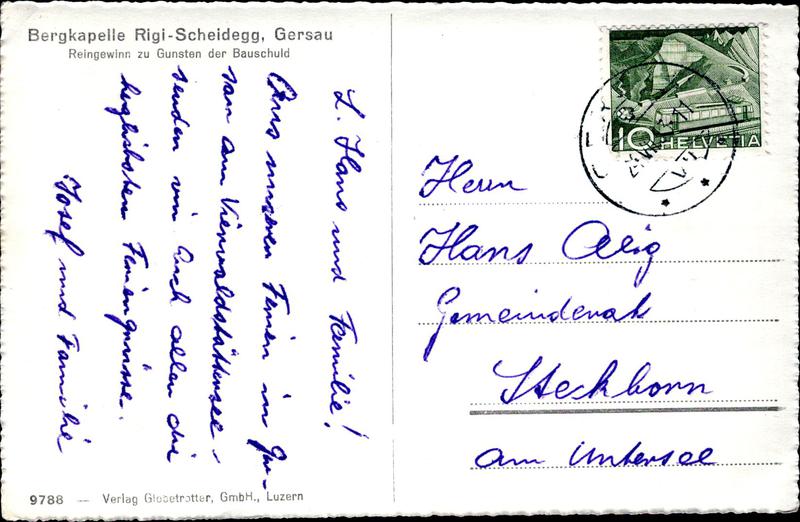 Bergkapelle Rigi-Scheidegg, Gersau
Reingewinn zu Gunsten der Bauschuld
L. Hans und Familie!
Aus unseren Ferien in Ger-
sau am Vierwaldstättersee -
senden wir Euch allen die
herzlichsten Feriengrüsse.
Josef und Familie
9788 — Verlag Globetrotter, GmbH., Luzern
10 HELVETIA
Herrn
Hans Alig
Gemeinderat
Steckborn
am Untersee